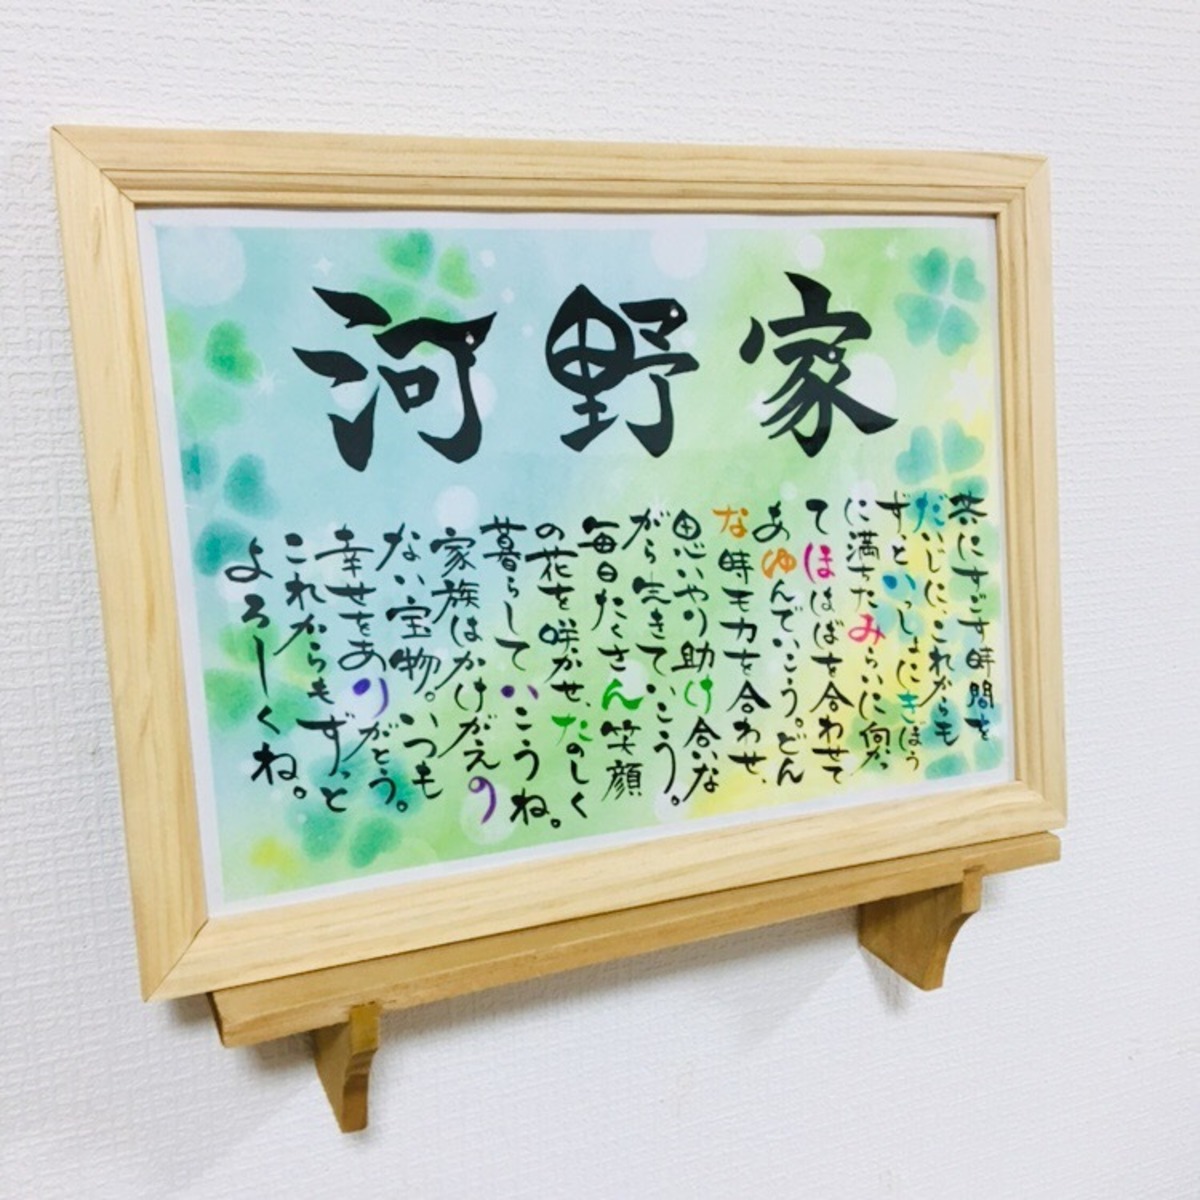 河野家
共にすごす時間を
だいじに、これからも
ずっといっしょにきぼう
に満ちたみらいに向かっ
てほはばを合わせて
あゆんでいこう。どん
な時も力を合わせ、
思いやり助け合いな
がら生きていこう。
毎日たくさん笑顔
の花を咲かせ、たのしく
暮らしていこうね。
家族はかけがえの
ない宝物。いつも
幸せをありがとう。
これからもずっと
よろしくね。